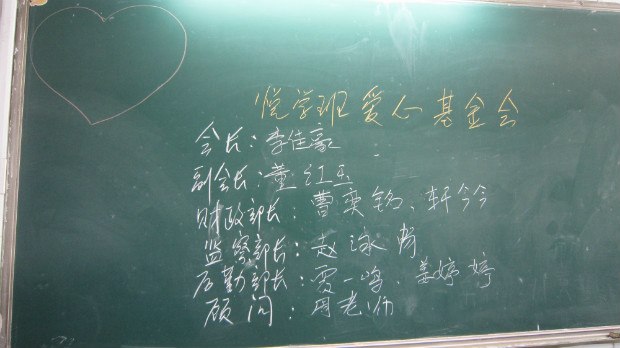 悦学班爱心基金会
会长：李佳豪
副会长：董红玉
财政部长：曹奕铭、轩今今
监察部长：赵泳
后勤部长：贾一鸣、姜婷婷
顾问：周老师